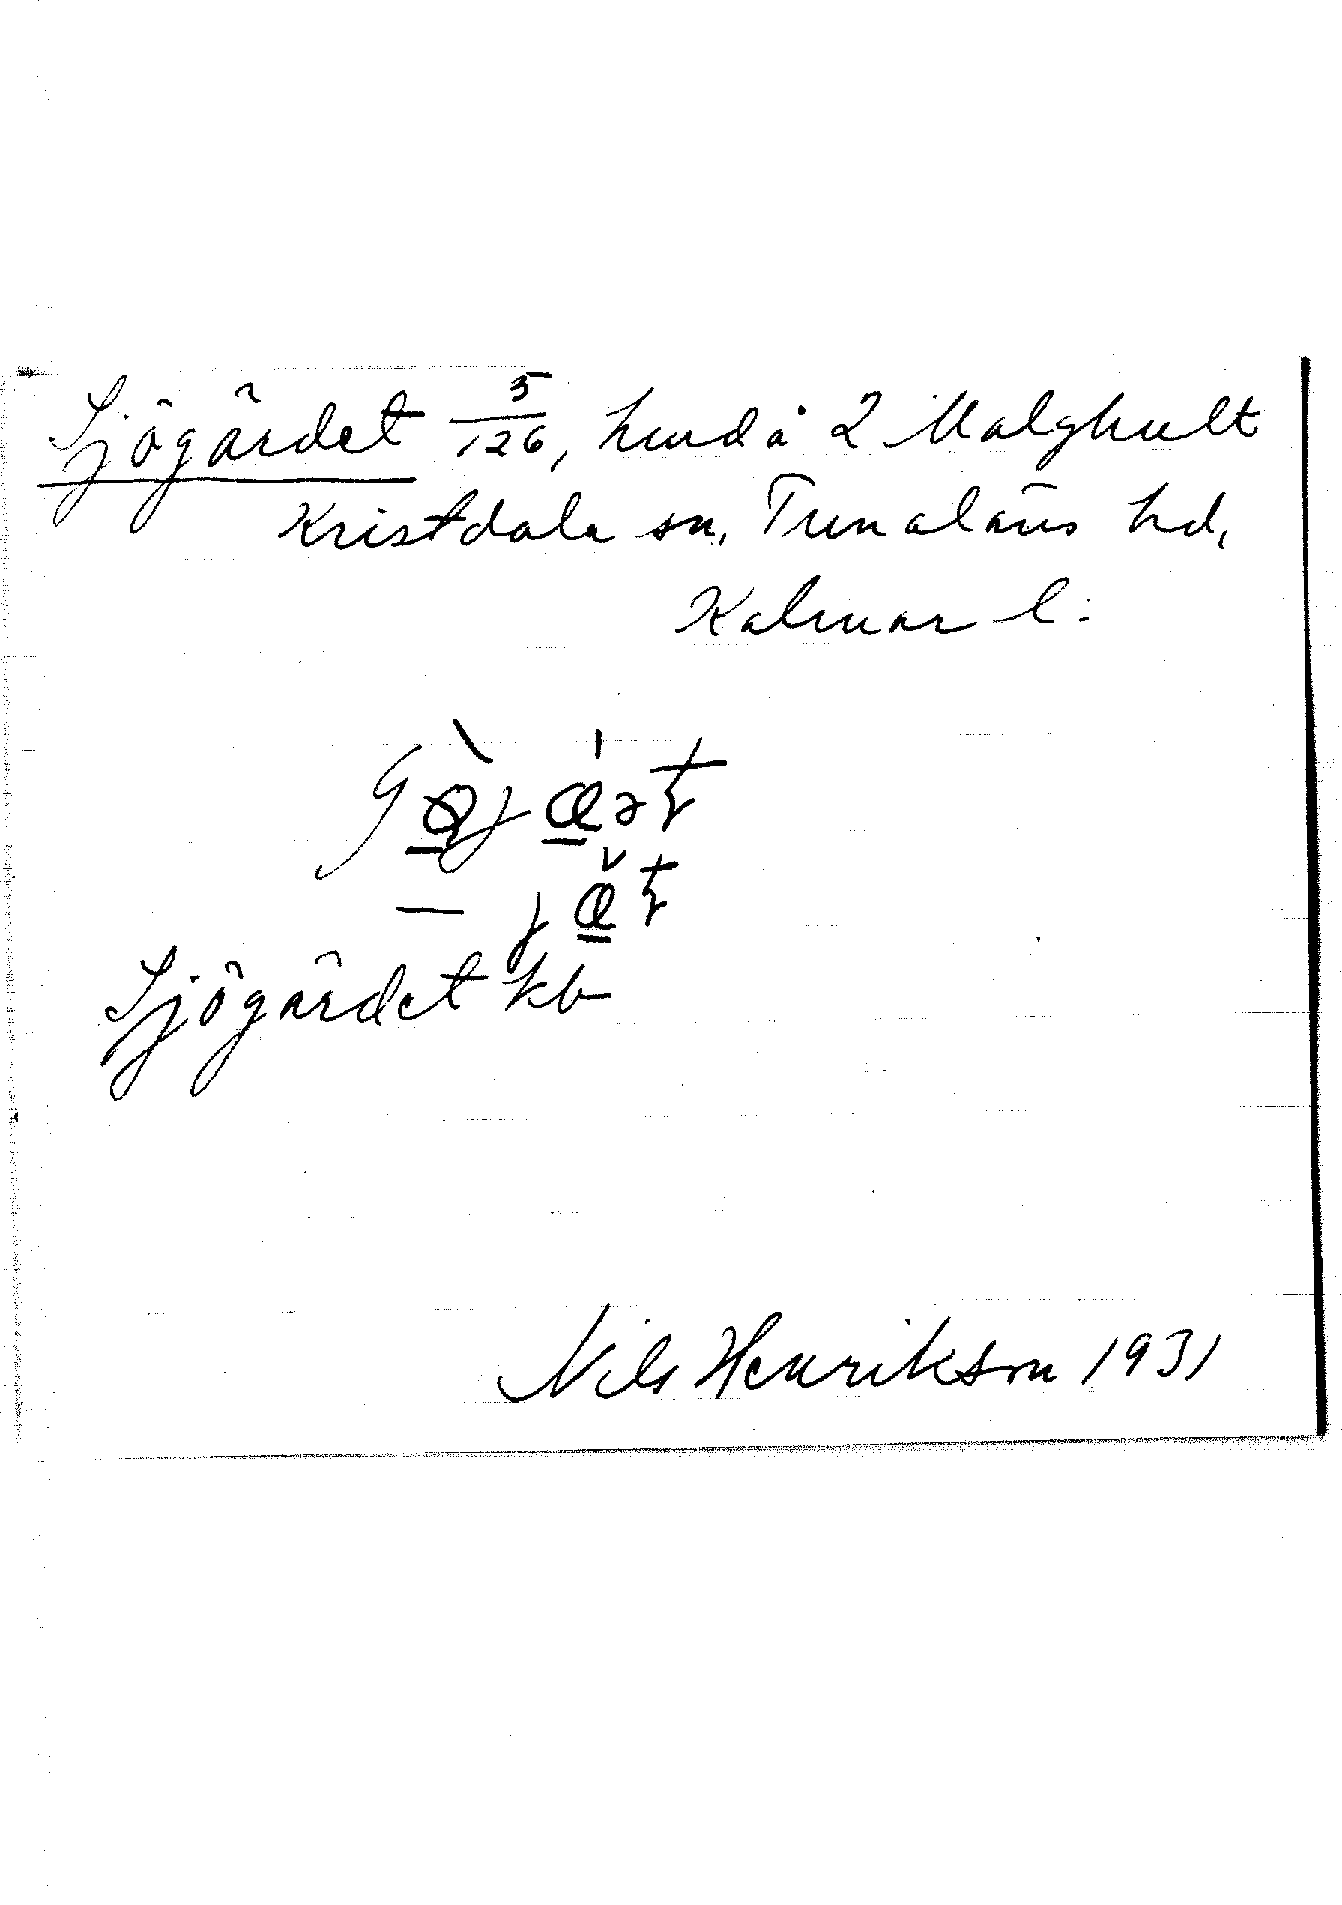 Sjögärdet 5/126, hmd å 2 Malghult
Kristdala sn, Tunaläns hd,
Kalmar l:
Sjögärdet kb
Nils Henrikson 1931